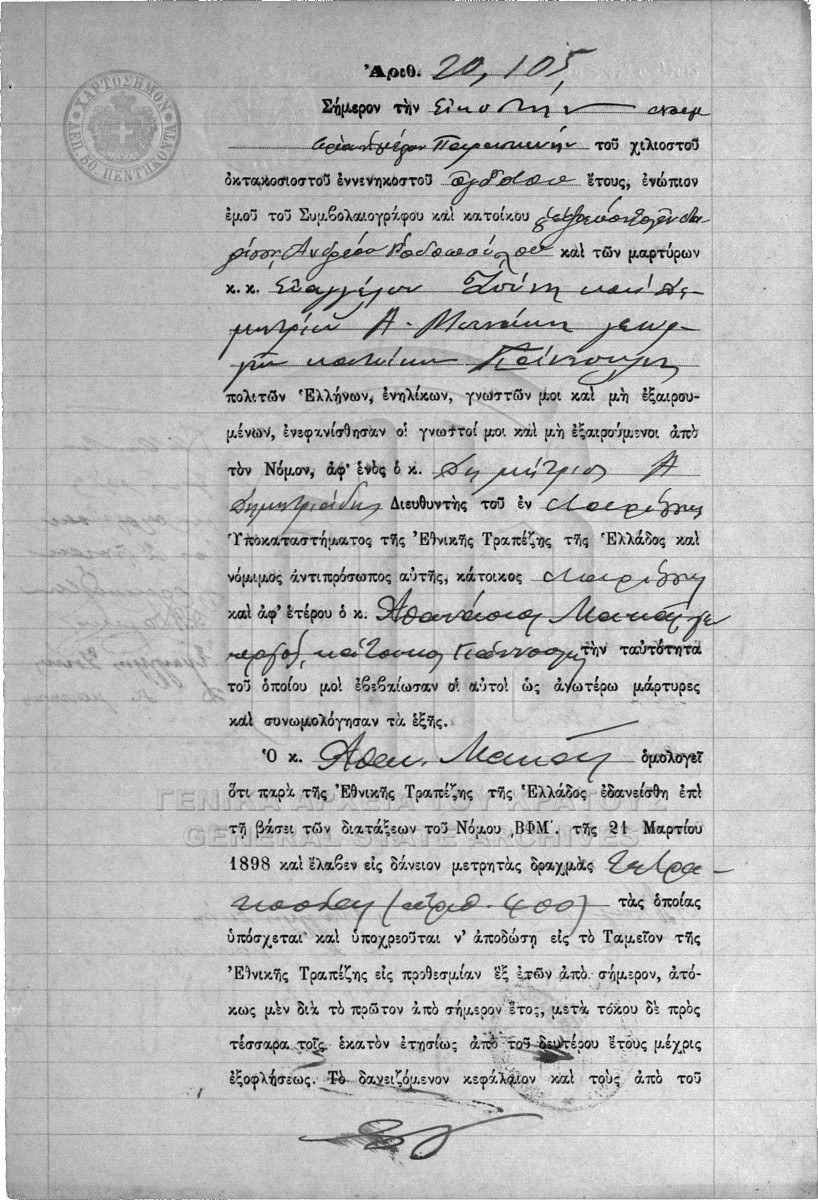 ΧΑΡΤΟΣΗΜΟΝ
ΛΕΠ. 50 ΠΕΝΤΗΚΟΝΤΑ
Ἀριθ. 20,105
Σήμερον τὴν Εἰκοστὴν
Παρασκευὴν τοῦ χιλιοστοῦ
ὀκτακοσιοστοῦ ἐννενηκοστοῦ ὀγδόου ἔτους, ἐνώπιον
ἐμοῦ τοῦ Συμβολαιογράφου καὶ κατοίκου
Λαρίσσης Ἀνδρέου Ροδοπούλου καὶ τῶν μαρτύρων
κ. κ. Εὐαγγέλου καὶ Δη-
μητρίου Α. γεωρ-
γῶν κατοίκων
πολιτῶν Ἑλλήνων, ἐνηλίκων, γνωστῶν μοι καὶ μὴ ἐξαιρου-
μένων, ἐνεφανίσθησαν οἱ γνωστοί μοι καὶ μὴ ἐξαιρούμενοι ἀπὸ
τὸν Νόμον, ἀφ' ἑνὸς ὁ κ. Δημήτριος Α
Δημητριάδης Διευθυντὴς τοῦ ἐν Λαρίσσῃ
Ὑποκαταστήματος τῆς Ἐθνικῆς Τραπέζης τῆς Ἑλλάδος καὶ
νόμιμος ἀντιπρόσωπος αὐτῆς, κάτοικος Λαρίσσης
καὶ ἀφ' ἑτέρου ὁ κ. Ἀθανάσιος γε
ωργός, κάτοικος τὴν ταὐτότητα
τοῦ ὁποίου μοὶ ἐβεβαίωσαν οἱ αὐτοὶ ὡς ἀνωτέρω μάρτυρες
καὶ συνωμολόγησαν τὰ ἑξῆς.
Ὁ κ. Ἀθαν. ὁμολογεῖ
ὅτι παρὰ τῆς Ἐθνικῆς Τραπέζης τῆς Ἑλλάδος ἐδανείσθη ἐπὶ
τῇ βάσει τῶν διατάξεων τοῦ Νόμου ͵ΒΦΜ΄. τῆς 21 Μαρτίου
1898 καὶ ἔλαβεν εἰς δάνειον μετρητὰς δραχμὰς τετρα-
κοσίας (ἀριθ. 400) τὰς ὁποίας
ὑπόσχεται καὶ ὑποχρεοῦται ν' ἀποδώσῃ εἰς τὸ Ταμεῖον τῆς
Ἐθνικῆς Τραπέζης εἰς προθεσμίαν ἓξ ἐτῶν ἀπὸ σήμερον, ἀτό-
κως μὲν διὰ τὸ πρῶτον ἀπὸ σήμερον ἔτος, μετὰ τόκου δὲ πρὸς
τέσσαρα τοῖς ἑκατὸν ἐτησίως ἀπὸ τοῦ δευτέρου ἔτους μέχρις
ἐξοφλήσεως. Τὸ δανειζόμενον κεφάλαιον καὶ τοὺς ἀπὸ τοῦ
ΓΕΝΙΚΑ ΑΡΧΕΙΑ ΤΟΥ ΚΡΑΤΟΥΣ
GENERAL STATE ARCHIVES